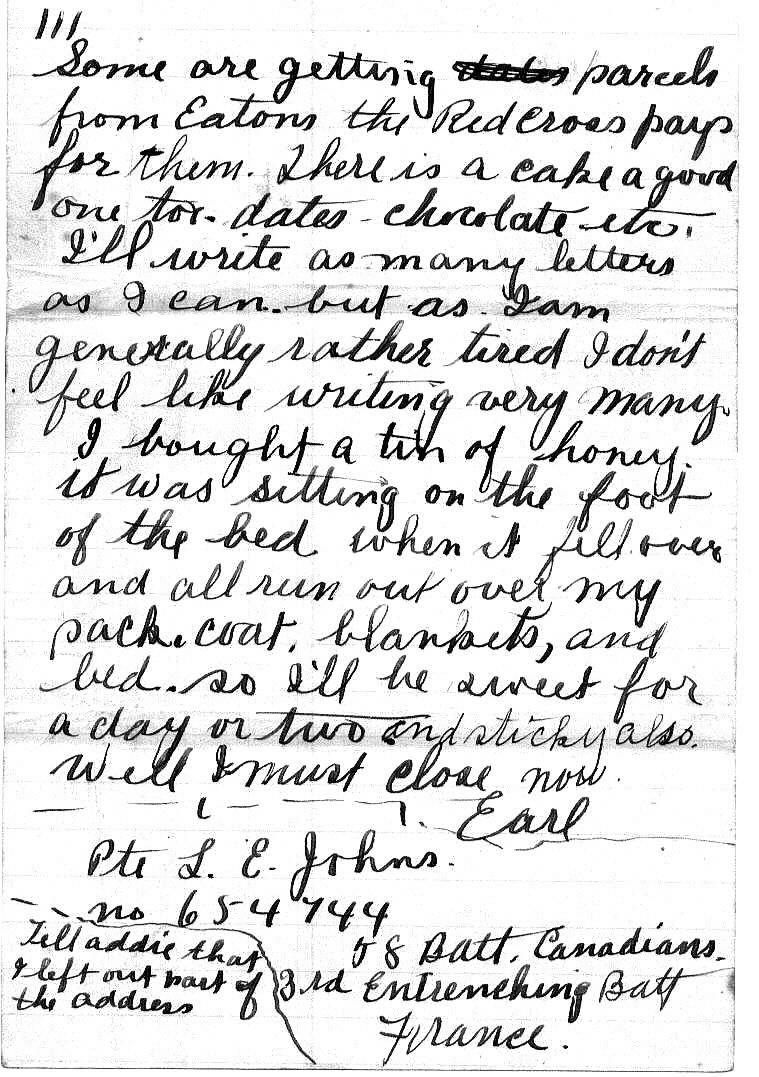 111
Some are getting dates parcels
from Eatons the Red Cross pays
for them. There is a cake a good
one too. dates - chocolate - etc.
I'll write as many letters
as I can. but as I am
generally rather tired I don't
feel like writing very many.
I bought a tin of honey.
it was sitting on the foot
of the bed when it fell over
and all run out over my
pack. coat, blankets, and
bed. so I'll be sweet for
a day or two and sticky also.
Well I must close now.
Earl
Pte L. E. Johns.
no 654744
58 Batt. Canadians.
3rd Entrenching Batt
France.
Tell addie that
I left out part of
the address